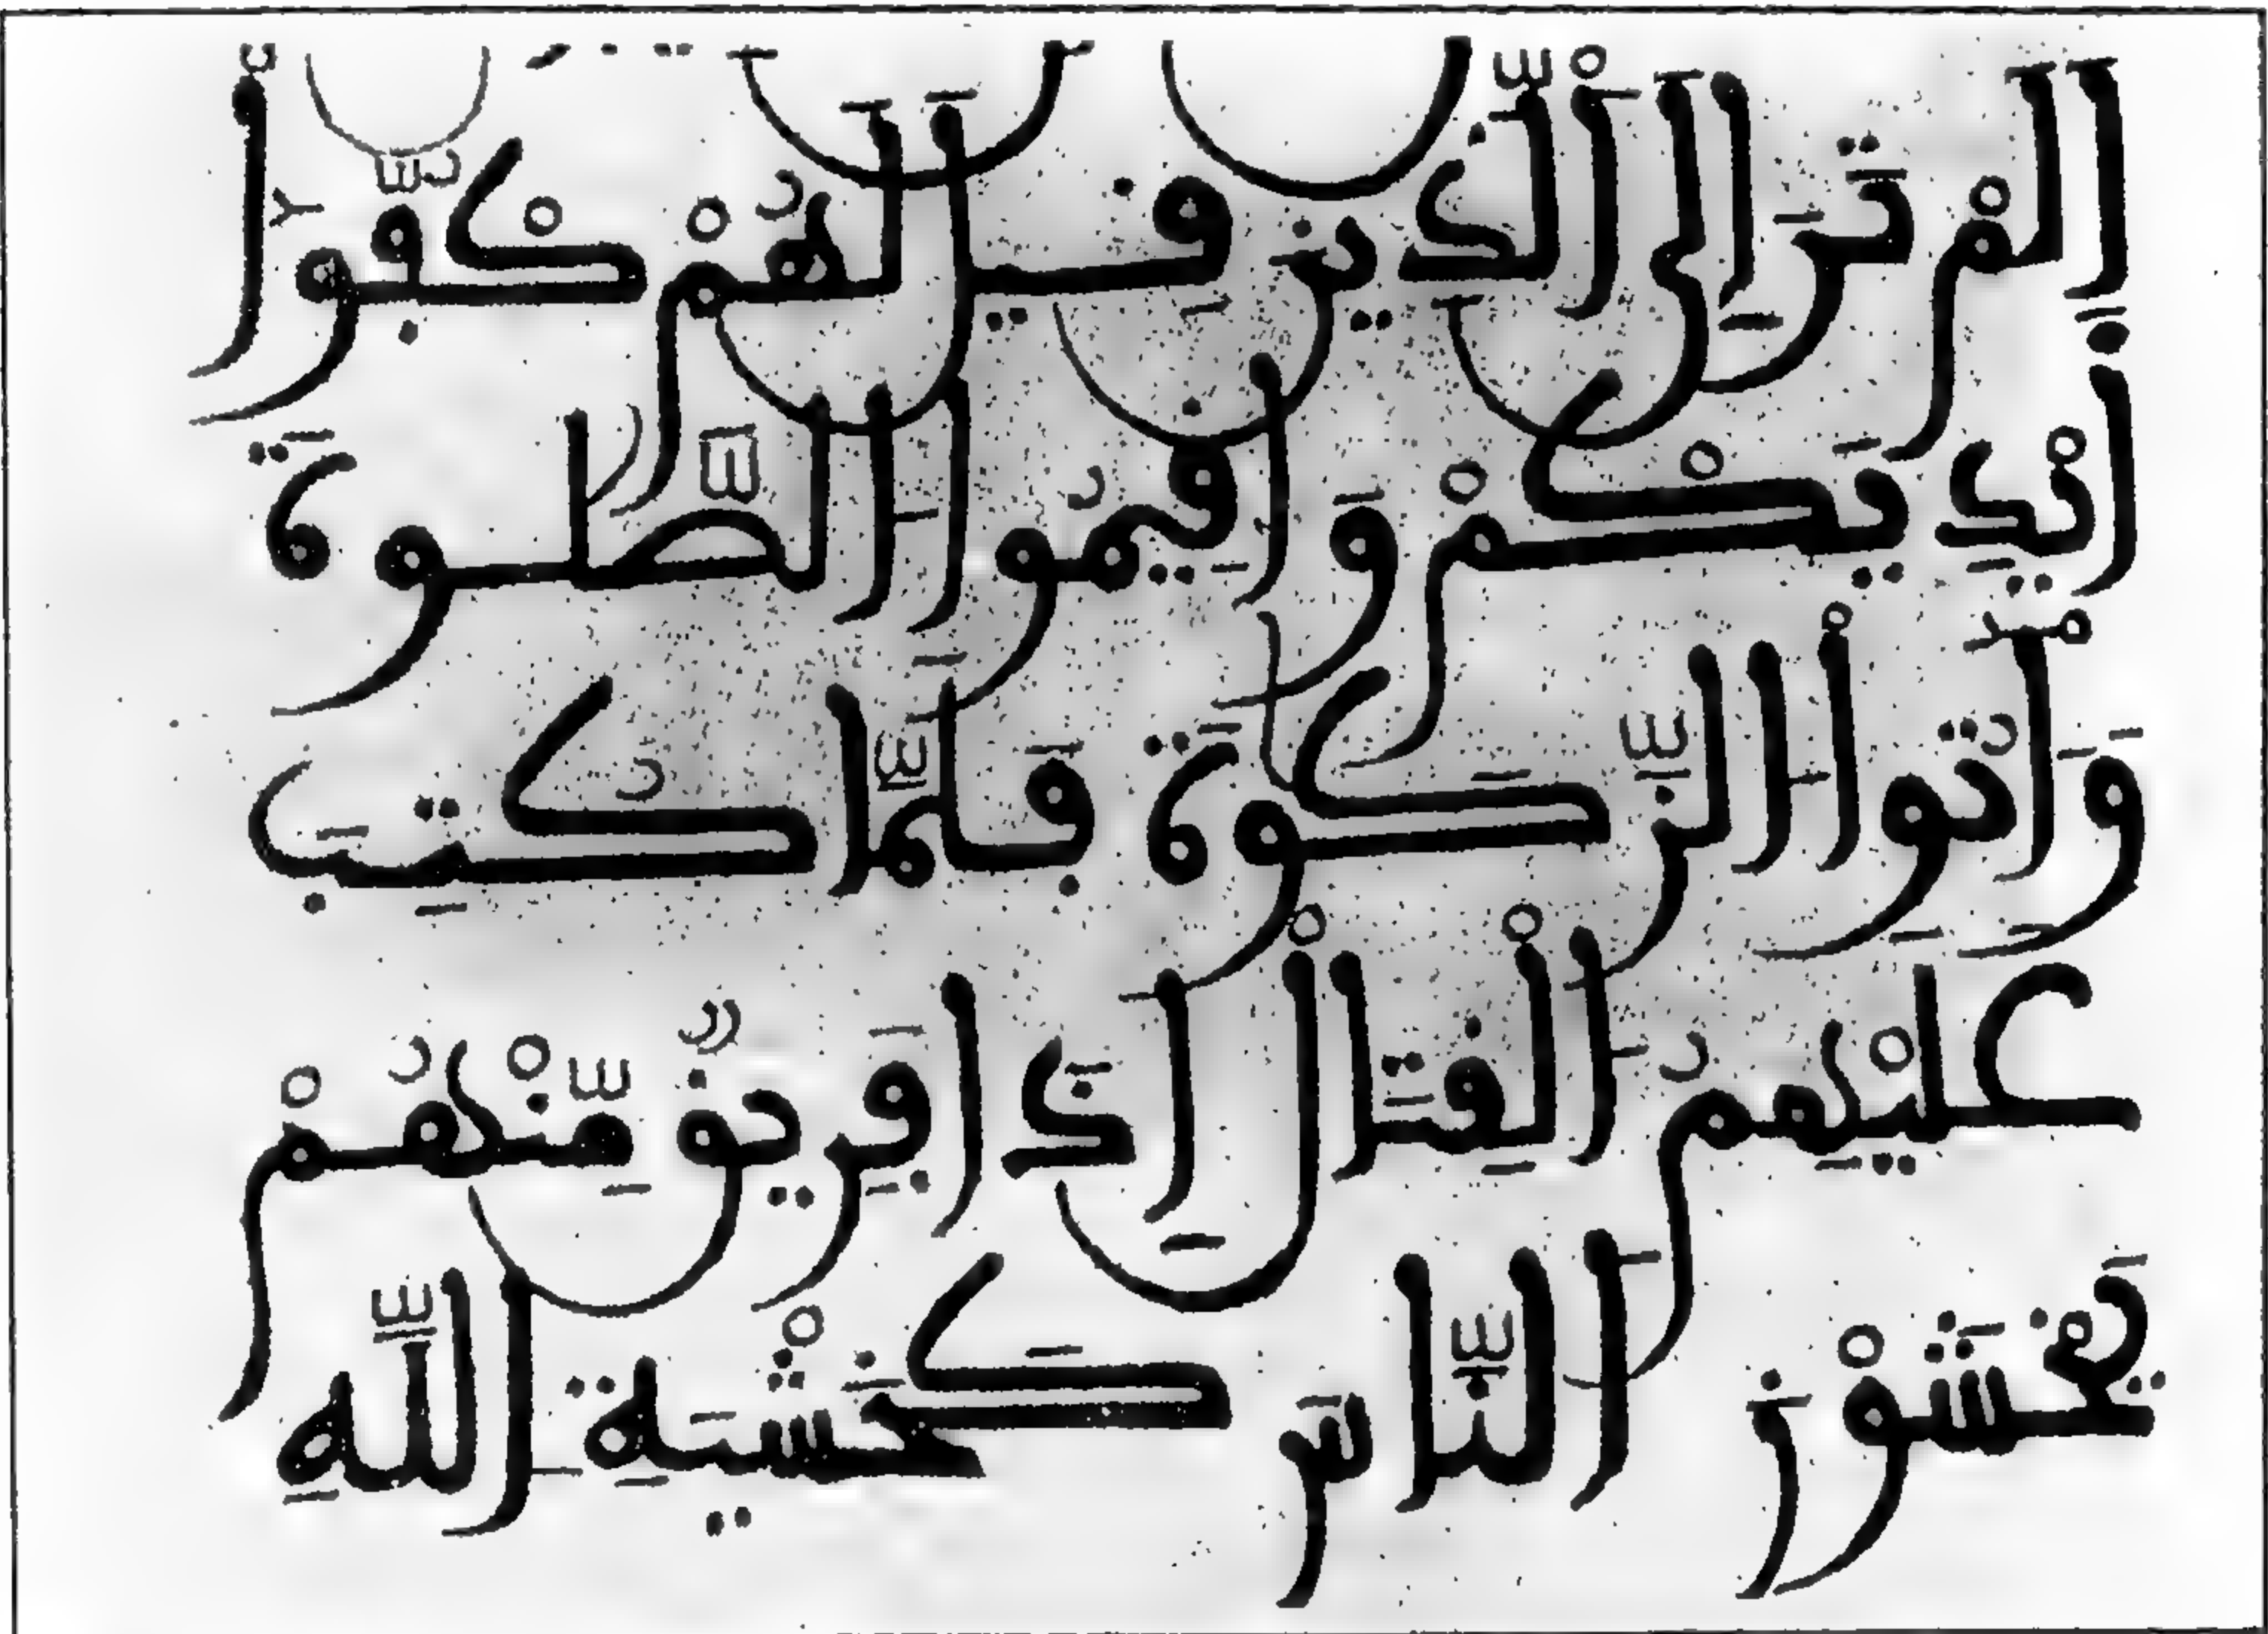 اَلَمْ تَرَ إِلَى اَ۬لذِينَ فِيلَ لَهُمْ كُبُّوٓاْ
أَيْدِيَكُمْ وَأَفِيمُواْ اُ۬لصَّلَوٰةَ
وَءَاتُواْ اُ۬لزَّكَوٰةَ بَلَمَّا كُتِبَ
عَلَيْهِمُ اُ۬لْفِتَالُ إِذَا بَرِيقٌ مِّنْهُمْ
يَخْشَوْنَ اَ۬لنَّاسَ كَخَشْيَةِ اِ۬للَّهِ